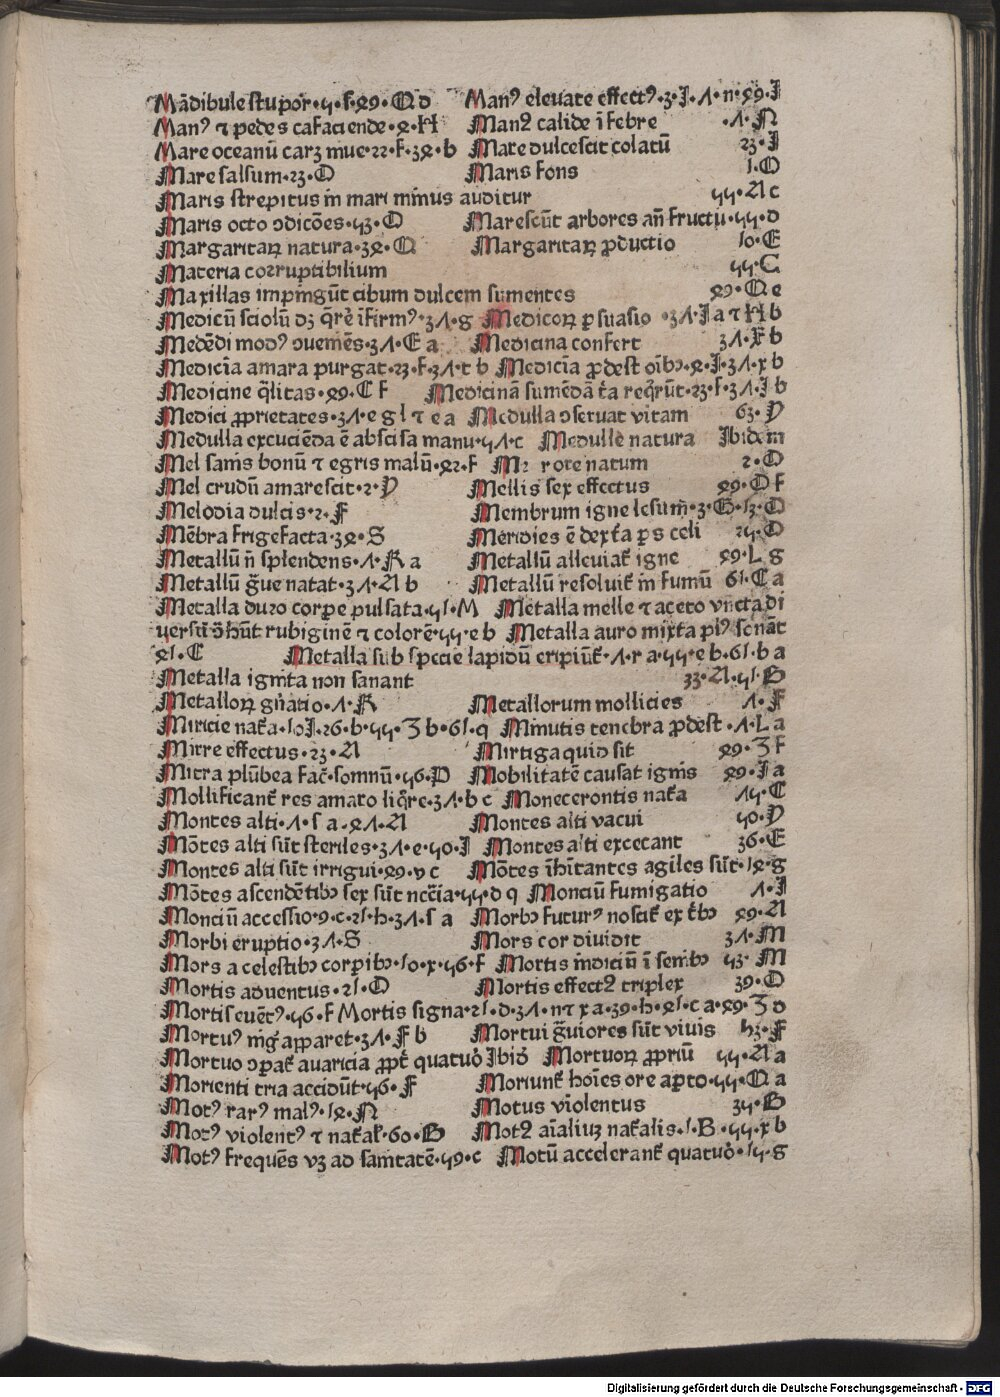 Mādibule stupor·ꝗ·f·89·Q d Manꝰ eleuate effectꝰ·3·I·Λ·n·89·I
Manꝰ ⁊ pedes cafaciende·8·H Manꝰ calide ī febre ·Λ·N
Mare oceanū carꝫ muc·22·F·38·b Mare dulcescit colatū 23·I
Mare salsum·23·O Maris fons 1·O
Maris strepitus in mari minus auditur 44·A c
Maris octo ↄdicōes·43·O Marescūt arbores añ fructu·44·d
Margaritaꝝ natura·38·Q Margaritaꝝ ꝓductio 10·E
Materia corruptibilium 44·C
Maxillas impīgūt cibum dulcem sumentes 89·Q e
Medicū sciolū dꝫ q̄rē īfirmꝰ·3Λ·g Medicoꝝ ꝑsuasio ·3Λ·I a ⁊ H b
Medēdi modꝰ ↄuemēs·3Λ·E a Medicina confert 3Λ·F b
Medicīa amara purgat·23·F·3Λ·t b Medicīa ꝓdest oībꝫ·8·I·3Λ·x b
Medicine q̄litas·89·C F Medicinā sumēdā t̄a req̄rūt·23·F·3Λ·I b
Medici ꝓprietates·3Λ·e g l ⁊ e a Medulla ↄseruat vitam 63·Y
Medulla excuciēda ē abscisa manu·4Λ·c Medulle natura Ibidem
Mel samis bonū ⁊ egris malū·82·F rore natum 2·O
Mel crudū amarescit·2·Y Mellis sex effectus 89·O F
Melodia dulcis·2·F Membrum igne lesum·3·G·13·O
Mēbra frigefacta·38·S Meridies ē dext̄a ꝑs celi 24·O
Metallū ñ splendens·Λ·R a Metallū alleuiat̄ igne 89·L g
Metallū g̈ue natat·3Λ·A b Metallū resoluit̄ in fumū 61·C a
Metalla duro corpe pulsata·41·M Metalla melle ⁊ aceto vncta di
uersū ōhūt rubiginē ⁊ colorē·44·e b Metalla auro mixta plꝰ sonāt
81·C Metalla sub specie lapidū eripiūt̄·Λ·r a·44·e b·61·b a
Metalla igmta non sanant 33·A·41·B
Metalloꝝ gñatio·Λ·R Metallorum mollicies Λ·F
Miricie nat̄a·10I·26·b·44·Z b·61·q Minutis tenebra ꝓdest·Λ·L a
Mirre effectus·23·A Mirtiga quid sit 89·Z F
Mitra plūbea fac̄·somnū·46·P Mobilitatē causat ignis 89·I a
Mollificant̄ res amaro liq̄re·3Λ·b c Monecerontis nat̄a 14·C
Montes alti·Λ·f a·8Λ·A Montes alti vacui 40·Y
Mōtes alti sūt steriles·3Λ·e·40·I Montes alti excecant 36·E
Montes alti sūt irrigui·89·v c Mōtes īhītantes agiles sūt·18·g
Mōtes ascendētibꝫ sex sūt nccīa·44·d q Monciū fumigatio Λ·I
Monciū accessio·9·c·21·h·3Λ·f a Morbꝫ futurꝰ noscit̄ ex t̄bꝫ 89·A
Morbi eruptio·3Λ·S Mors cor diuidit 3Λ·M
Mors a celestibꝫ corpibꝫ·10·x·46·F Mortis indiciū ī senibꝫ 43·M
Mortis aduentus·21·O Mortis effectꝰ triplex 39·O
Mortis euētꝰ·46·F Mortis signa·21·d·3Λ·n ⁊ x a·39·h·81·c a·89·Z d
Mortuꝰ mg̈ apparet·3Λ·F b Mortui g̈uiores sūt viuis 43·F
Mortuo ↄpat̄ auaricia ꝓpt̄ quatuō Ibid̄ Mortuoꝝ ꝓpriū 44·A a
Morienti tria accidūt·46·F Moriunt̄ hoīes ore apto·44·Q a
Motꝰ rarꝰ malꝰ·18·N Motus violentus 34·B
Motꝰ violentꝰ ⁊ nat̄al̄·60·B Motꝰ aīaliuꝫ nat̄alis·1·B·44·x b
Motꝰ frequēs vꝫ ad sanitatē·49·c Motū accelerant̄ quatuō·14·g
Digitalisierung gefördert durch die Deutsche Forschungsgemeinschaft - DFG